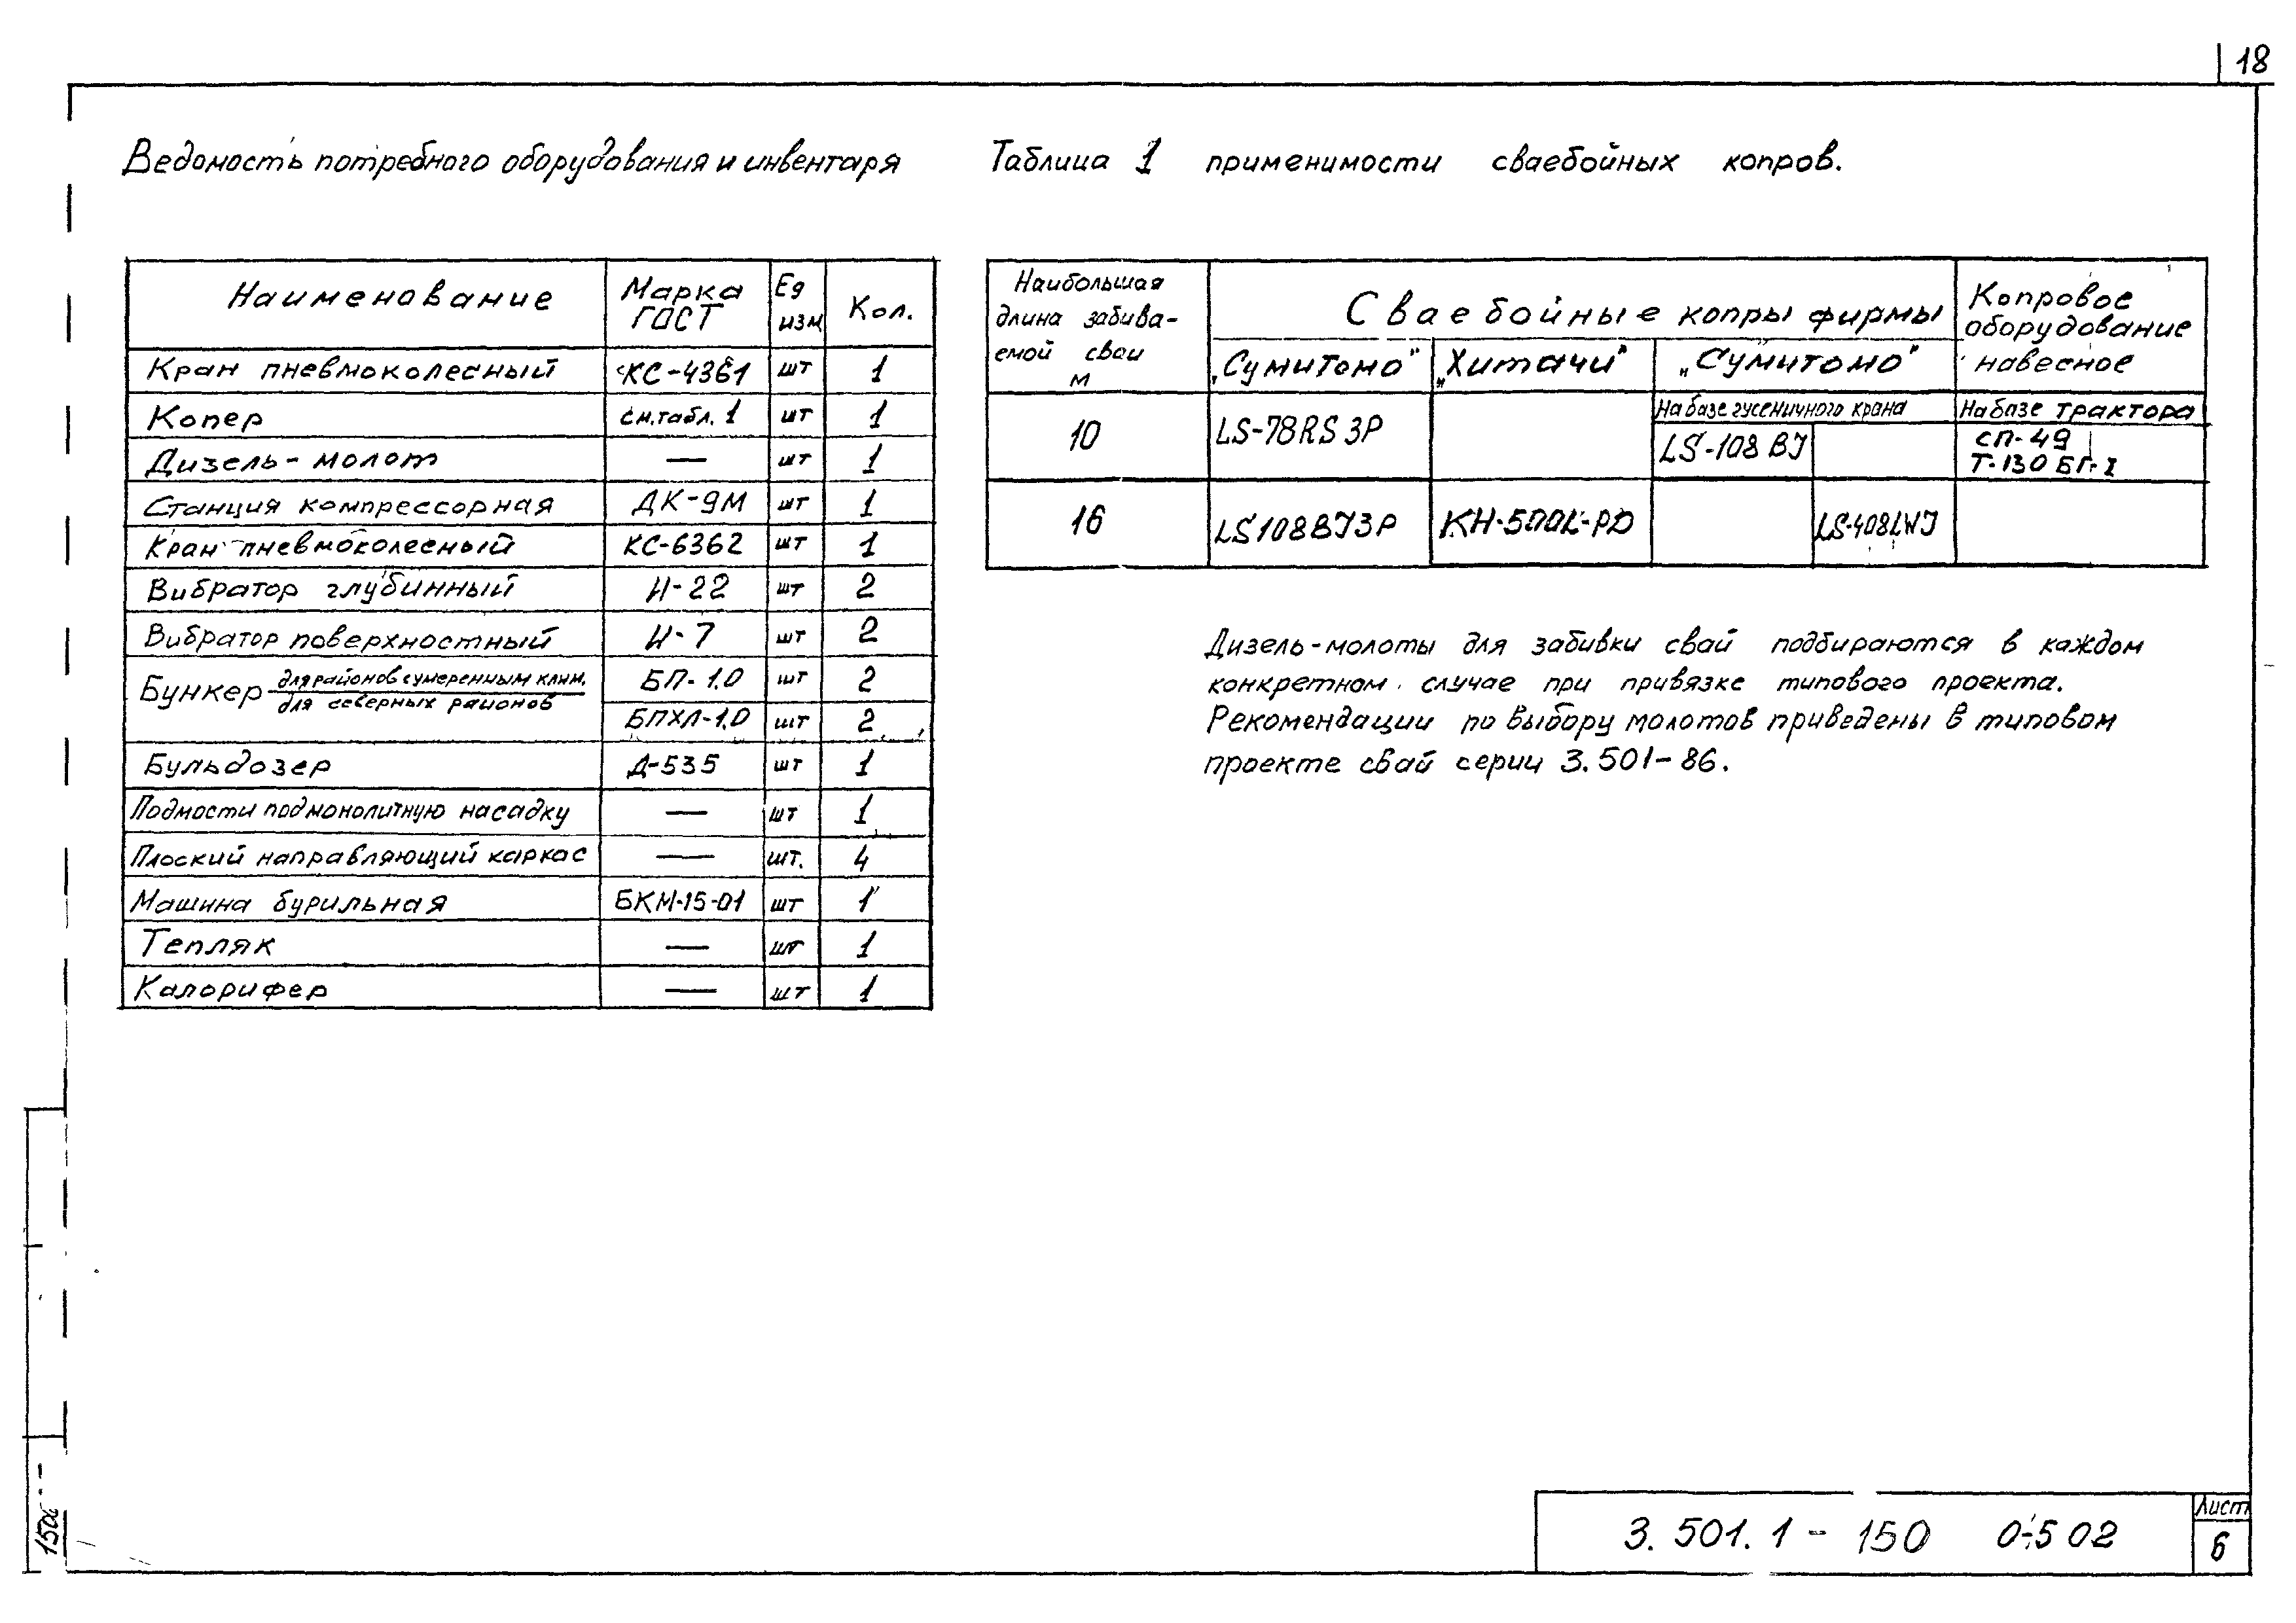 18
Ведомость потребного оборудования и инвентаря
Наименование Марка ГОСТ Ед изм Кол.
Кран пневмоколесный КС-4361 шт 1
Копер см.табл. 1 шт 1
Дизель-молот — шт 1
Станция компрессорная ДК-9М шт 1
Кран пневмоколесный КС-6362 шт 1
Вибратор глубинный И-22 шт 2
Вибратор поверхностный И-7 шт 2
Бункер для районов с умеренным клим. БП-1.0 шт 2
для северных районов БПХЛ-1.0 шт 2
Бульдозер Д-535 шт 1
Подмости под монолитную насадку — шт 1
Плоский направляющий каркас — шт. 4
Машина бурильная БКМ-15-01 шт 1
Тепляк — шт 1
Калорифер — шт 1
Таблица 1 применимости сваебойных копров.
Наибольшая
длина забива-
емой сваи
м
Сваебойные копры фирмы
Копровое
оборудование
навесное
„Сумитомо" „Хитачи" „Сумитомо"
На базе гусеничного крана На базе трактора
10 LS-78RS3P LS-108BJ СП-49
Т-130БГ-I
16 LS108BJ3P KH-500L-PD LS-408LWJ
Дизель-молоты для забивки свай подбираются в каждом
конкретном случае при привязке типового проекта.
Рекомендации по выбору молотов приведены в типовом
проекте свай серии 3.501-86.
3.501.1-150 0-5 02
Лист
6